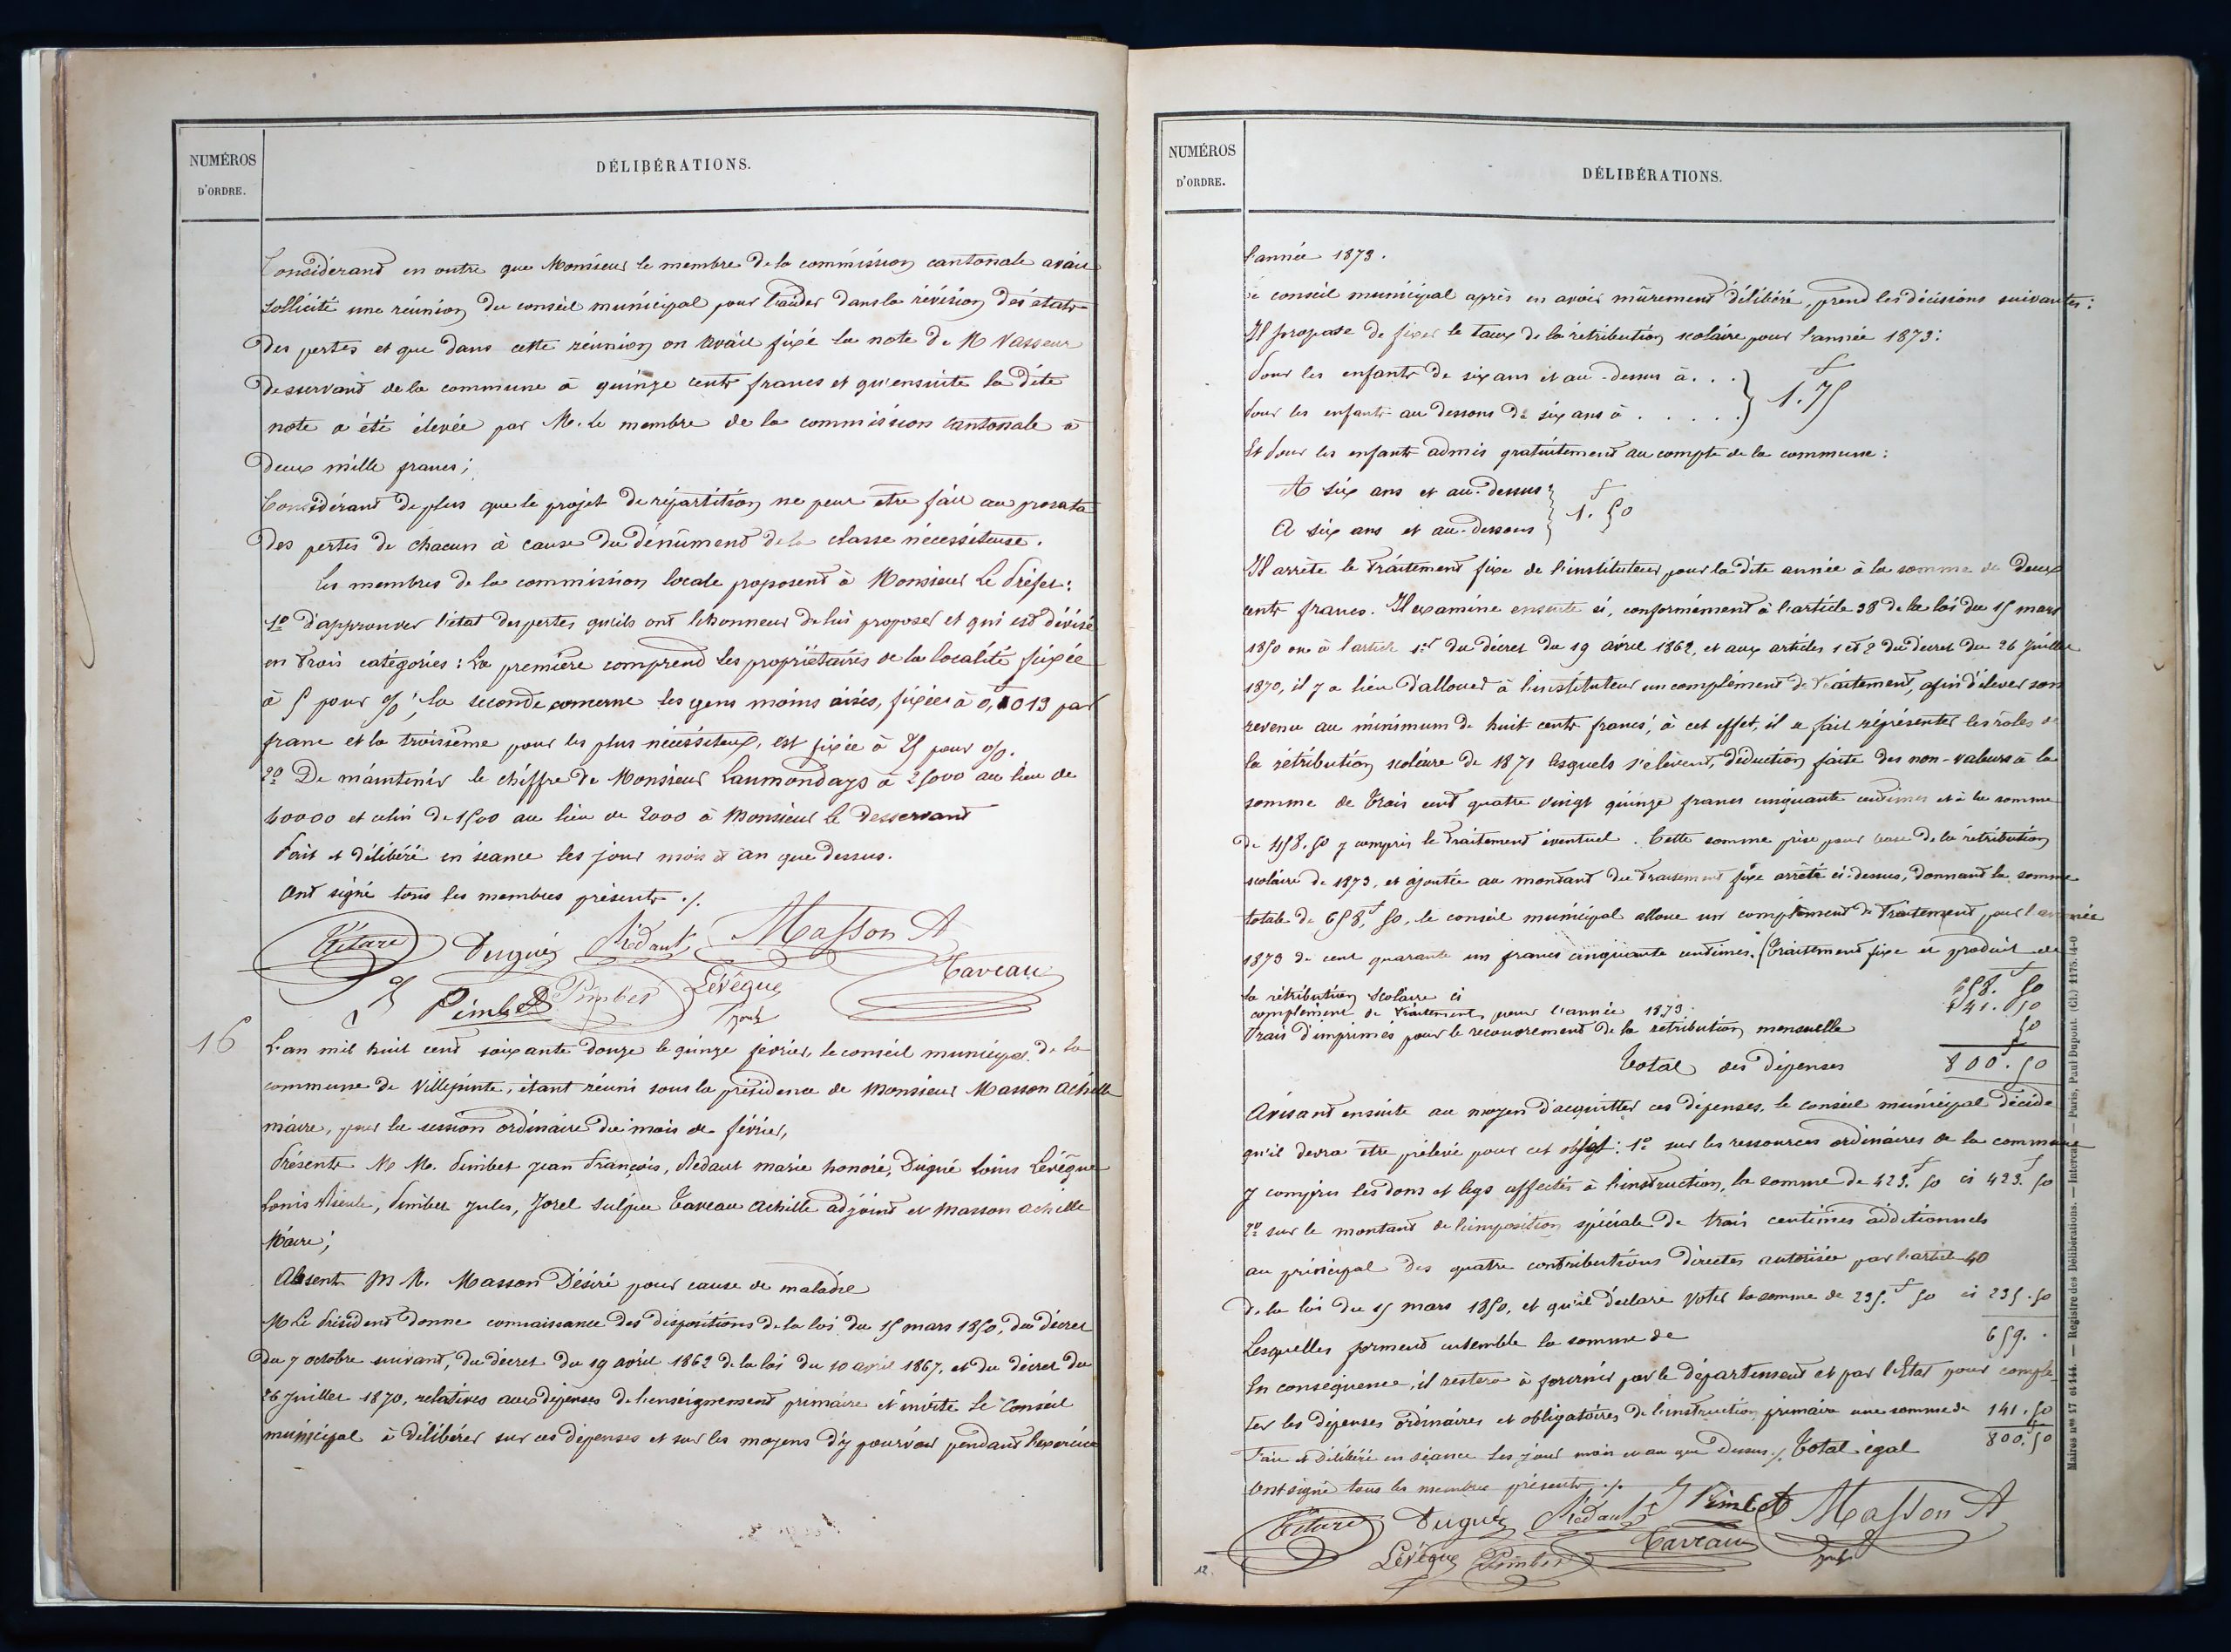 NUMÉROS
D'ORDRE.
DÉLIBÉRATIONS.
Considérant en outre que Monsieur le membre de la commission cantonale avait
sollicité une réunion du conseil municipal pour l'aider dans la révision des états
des pertes et que dans cette réunion on avait fixé la note de M Vasseur
desservant de la commune à quinze cents francs et qu'ensuite la dite
note a été élevée par M. le membre de la commission cantonale à
deux mille francs;
Considérant de plus que le projet de répartition ne peut être fait au prorata
des pertes de chacun à cause du dénûment de la classe nécessiteuse.
Les membres de la commission locale proposent à Monsieur Le Préfet:
1º d'approuver l'état des pertes qu'ils ont l'honneur de lui proposer et qui est divisé
en trois catégories: La première comprend les propriétaires de la localité fixée
à 5 pour %; la seconde concerne les gens moins aisés, fixées à 0,f013 par
franc et la troisième pour les plus nécessiteux, est fixée à 25 pour %.
2º De maintenir le chiffre de Monsieur Laumondays à 25000 au lieu de
40000 et celui de 1500 au lieu de 2000 à Monsieur le desservant
Fait et délibéré en séance les jour mois et an que dessus.
Ont signé tous les membres présents ./.
Tétard Dugué Rédaut Masson A
J Pimbet Pimbet Lévêque Taveau
Jorel
16
L'an mil huit cent soixante douze le quinze février, le conseil municipal de la
commune de Villepinte, étant réuni sous la présidence de Monsieur Masson Achille
maire, pour la session ordinaire du mois de février,
Présents M M. Pimbet Jean François, Rédaut marie honoré, Dugué Louis Lévêque
Louis Pimbet Jules, Jorel Sulpice Taveau Achille adjoint et Masson Achille
Maire;
Absent M M. Masson Désiré pour cause de maladie
M Le Président donne connaissance des dispositions de la loi du 15 mars 1850, du décret
du 7 octobre suivant, du décret du 19 avril 1862 de la loi du 10 avril 1867, et du décret du
26 Juillet 1870, relatives aux dépenses de l'enseignement primaire et invite Le Conseil
municipal à délibérer sur ces dépenses et sur les moyens d'y pourvoir pendant l'exercice
NUMÉROS
D'ORDRE.
DÉLIBÉRATIONS.
l'année 1873.
Le conseil municipal après en avoir mûrement délibéré, prend les décisions suivantes:
Il propose de fixer le taux de la rétribution scolaire pour l'année 1873:
Pour les enfants de six ans et au-dessus à . . . } f
Pour les enfants au dessous de six ans à . . . . . } 1.75
Et Pour les enfants admis gratuitement au compte de la commune:
A six ans et au-dessus } f
A six ans et au-dessous } 1.50
Il arrête le traitement fixe de l'instituteur pour la dite année à la somme de deux
cents francs. Il examine ensuite si, conformément à l'article 38 de la loi du 15 mars
1850 ou à l'article 1er du décret du 19 avril 1862, et aux articles 1 et 2 du décret du 26 Juillet
1870, il y a lieu d'allouer à l'instituteur un complément de traitement, afin d'élever son
revenu au minimum de huit cents francs; à cet effet, il se fait réprésenter les rôles de
la rétribution scolaire de 1871 lesquels s'élèvent, déduction faite des non-valeurs à la
somme de trois cent quatre vingt quinze francs cinquante centimes et à la somme
de 458.50 y compris le traitement éventuel. Cette somme prise pour base de la rétribution
scolaire de 1873, et ajoutée au montant du traitement fixe arrêté ci-dessus, donnant la somme
totale de 658,f50, le conseil municipal alloue un complément de Traitement pour l'année
1873 de cent quarante un francs cinquante centimes. (Traitement fixe et produit de
la rétribution Scolaire ci 658.f50
complément de traitement, pour l'année 1873. 141.50
Frais d'imprimés pour le recouvrement de la rétribution mensuelle 50
Total des dépenses 800.f50
Avisant ensuite au moyen d'acquitter ces dépenses, le conseil municipal décide
qu'il devra être prélevé pour cet objet: 1º sur les ressources ordinaires de la commune
y compris les dons et legs affectés à l'instruction, la somme de 423.f50 ci 423.f50
2º sur le montant de l'imposition spéciale de trois centimes additionnels
au principal des quatre contributions directes autorisée par l'article 40
de la loi du 15 mars 1850, et qu'il déclare voter la somme de 235.f50 ci 235.50
Lesquelles forment ensemble la somme de 659. .
En conséquence, il restera à fournir par le département et par l'Etat pour complé-
ter les dépenses ordinaires et obligatoires de l'instruction primaire une somme de 141.50
Fait et délibéré en séance les jour mois et an que dessus ./. Total égal 800.f50
Ont signé tous les membres présents ./.
Tétard Dugué Rédaut J Pimbet Masson A
Lévêque Pimbet Taveau Jorel
12.
Maires nos 47 et 144. — Registre des Délibérations. — Intercal. — Paris, Paul Dupont (Cl.) 1175.